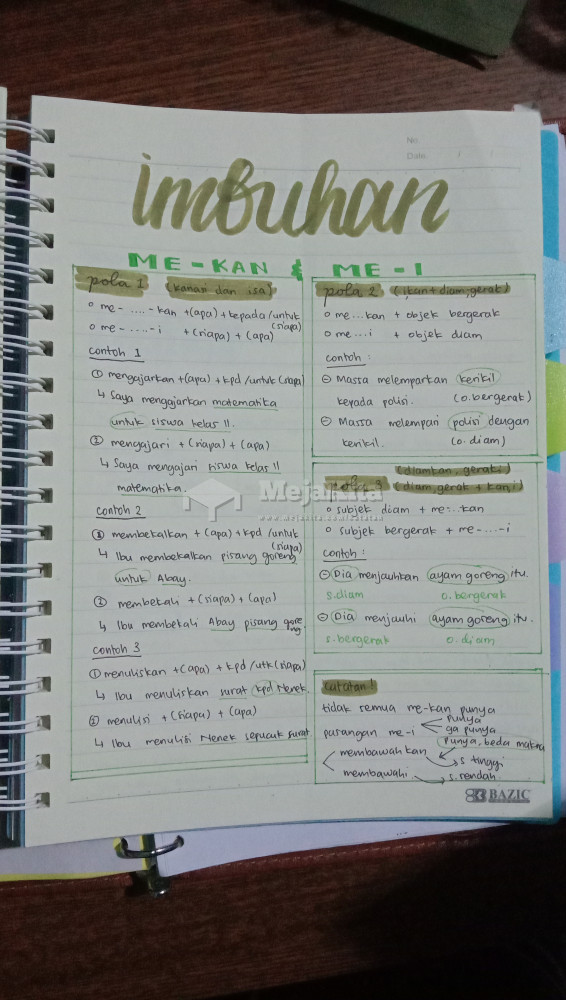 No
Date
imbuhan
ME-KAN & ME-I
pola 1 (kanapi dan isa)
o me-.....-kan +(apa)+kepada/untuk
(siapa)
o me-.....-i +(siapa)+(apa)
contoh 1
① mengajarkan+(apa)+kpd/untuk(siapa)
↳ Saya mengajarkan matematika
untuk siswa kelas 11.
② mengajari +(siapa)+(apa)
↳ Saya mengajari siswa kelas 11
matematika.
contoh 2
① membekalkan +(apa)+kpd/untuk
(siapa)
↳ Ibu membekalkan pisang goreng
untuk Abay.
② membekali +(siapa)+(apa)
↳ Ibu membekali Abay pisang gore
ng.
contoh 3
① menuliskan +(apa)+kpd/utk(siapa)
↳ Ibu menuliskan surat kpd Nenek.
② menulisi +(siapa)+(apa)
↳ Ibu menulisi Nenek sepucuk surat.
pola 2 (ikan+diam;gerak)
o me...kan + objek bergerak
o me...i + objek diam
contoh :
⊖ Massa melemparkan kerikil
kepada polisi. (o.bergerak)
⊖ Massa melempari polisi dengan
kerikil. (o.diam)
(diamkan, geraki)
pola 3 (diam,gerak+kan,i)
o subjek diam + me-..kan
o subjek bergerak + me-....-i
contoh :
⊖ Dia menjauhkan ayam goreng itu.
s.diam o.bergerak
⊖ Dia menjauhi ayam goreng itu.
s.bergerak o.diam
catatan!
tidak semua me-kan punya
pasangan me-i
punya
ga punya
punya, beda makna
membawahkan s tinggi
membawahi s.rendah
Mejakita
BAZIC